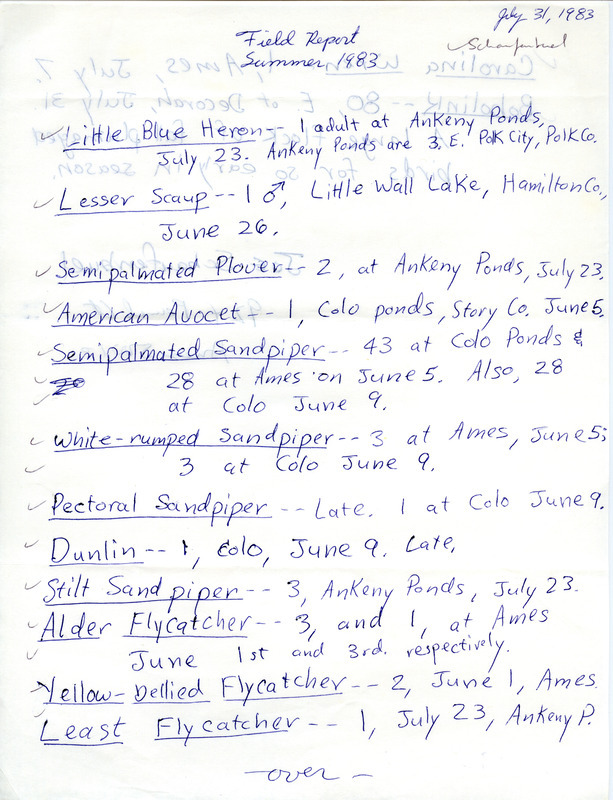 July 31, 1983
Field Report
Summer 1983
Little Blue Heron -- 1 adult at Ankeny Ponds,
July 23. Ankeny Ponds are 3. E. Polk City, Polk Co.
Lesser Scaup -- 1 ♂, Little Wall Lake, Hamilton Co.,
June 26.
Semipalmated Plover -- 2, at Ankeny Ponds, July 23.
American Avocet -- 1, Colo ponds, Story Co. June 5.
Semipalmated Sandpiper -- 43 at Colo Ponds &
28 at Ames on June 5. Also, 28
at Colo June 9.
White-rumped Sandpiper -- 3 at Ames, June 5;
3 at Colo June 9.
Pectoral Sandpiper -- Late. 1 at Colo June 9.
Dunlin -- 1, Colo, June 9. Late.
Stilt Sandpiper -- 3, Ankeny Ponds, July 23.
Alder Flycatcher -- 3, and 1, at Ames
June 1st and 3rd. respectively.
Yellow-Bellied Flycatcher -- 2, June 1, Ames
Least Flycatcher -- 1, July 23, Ankeny P.
- over -